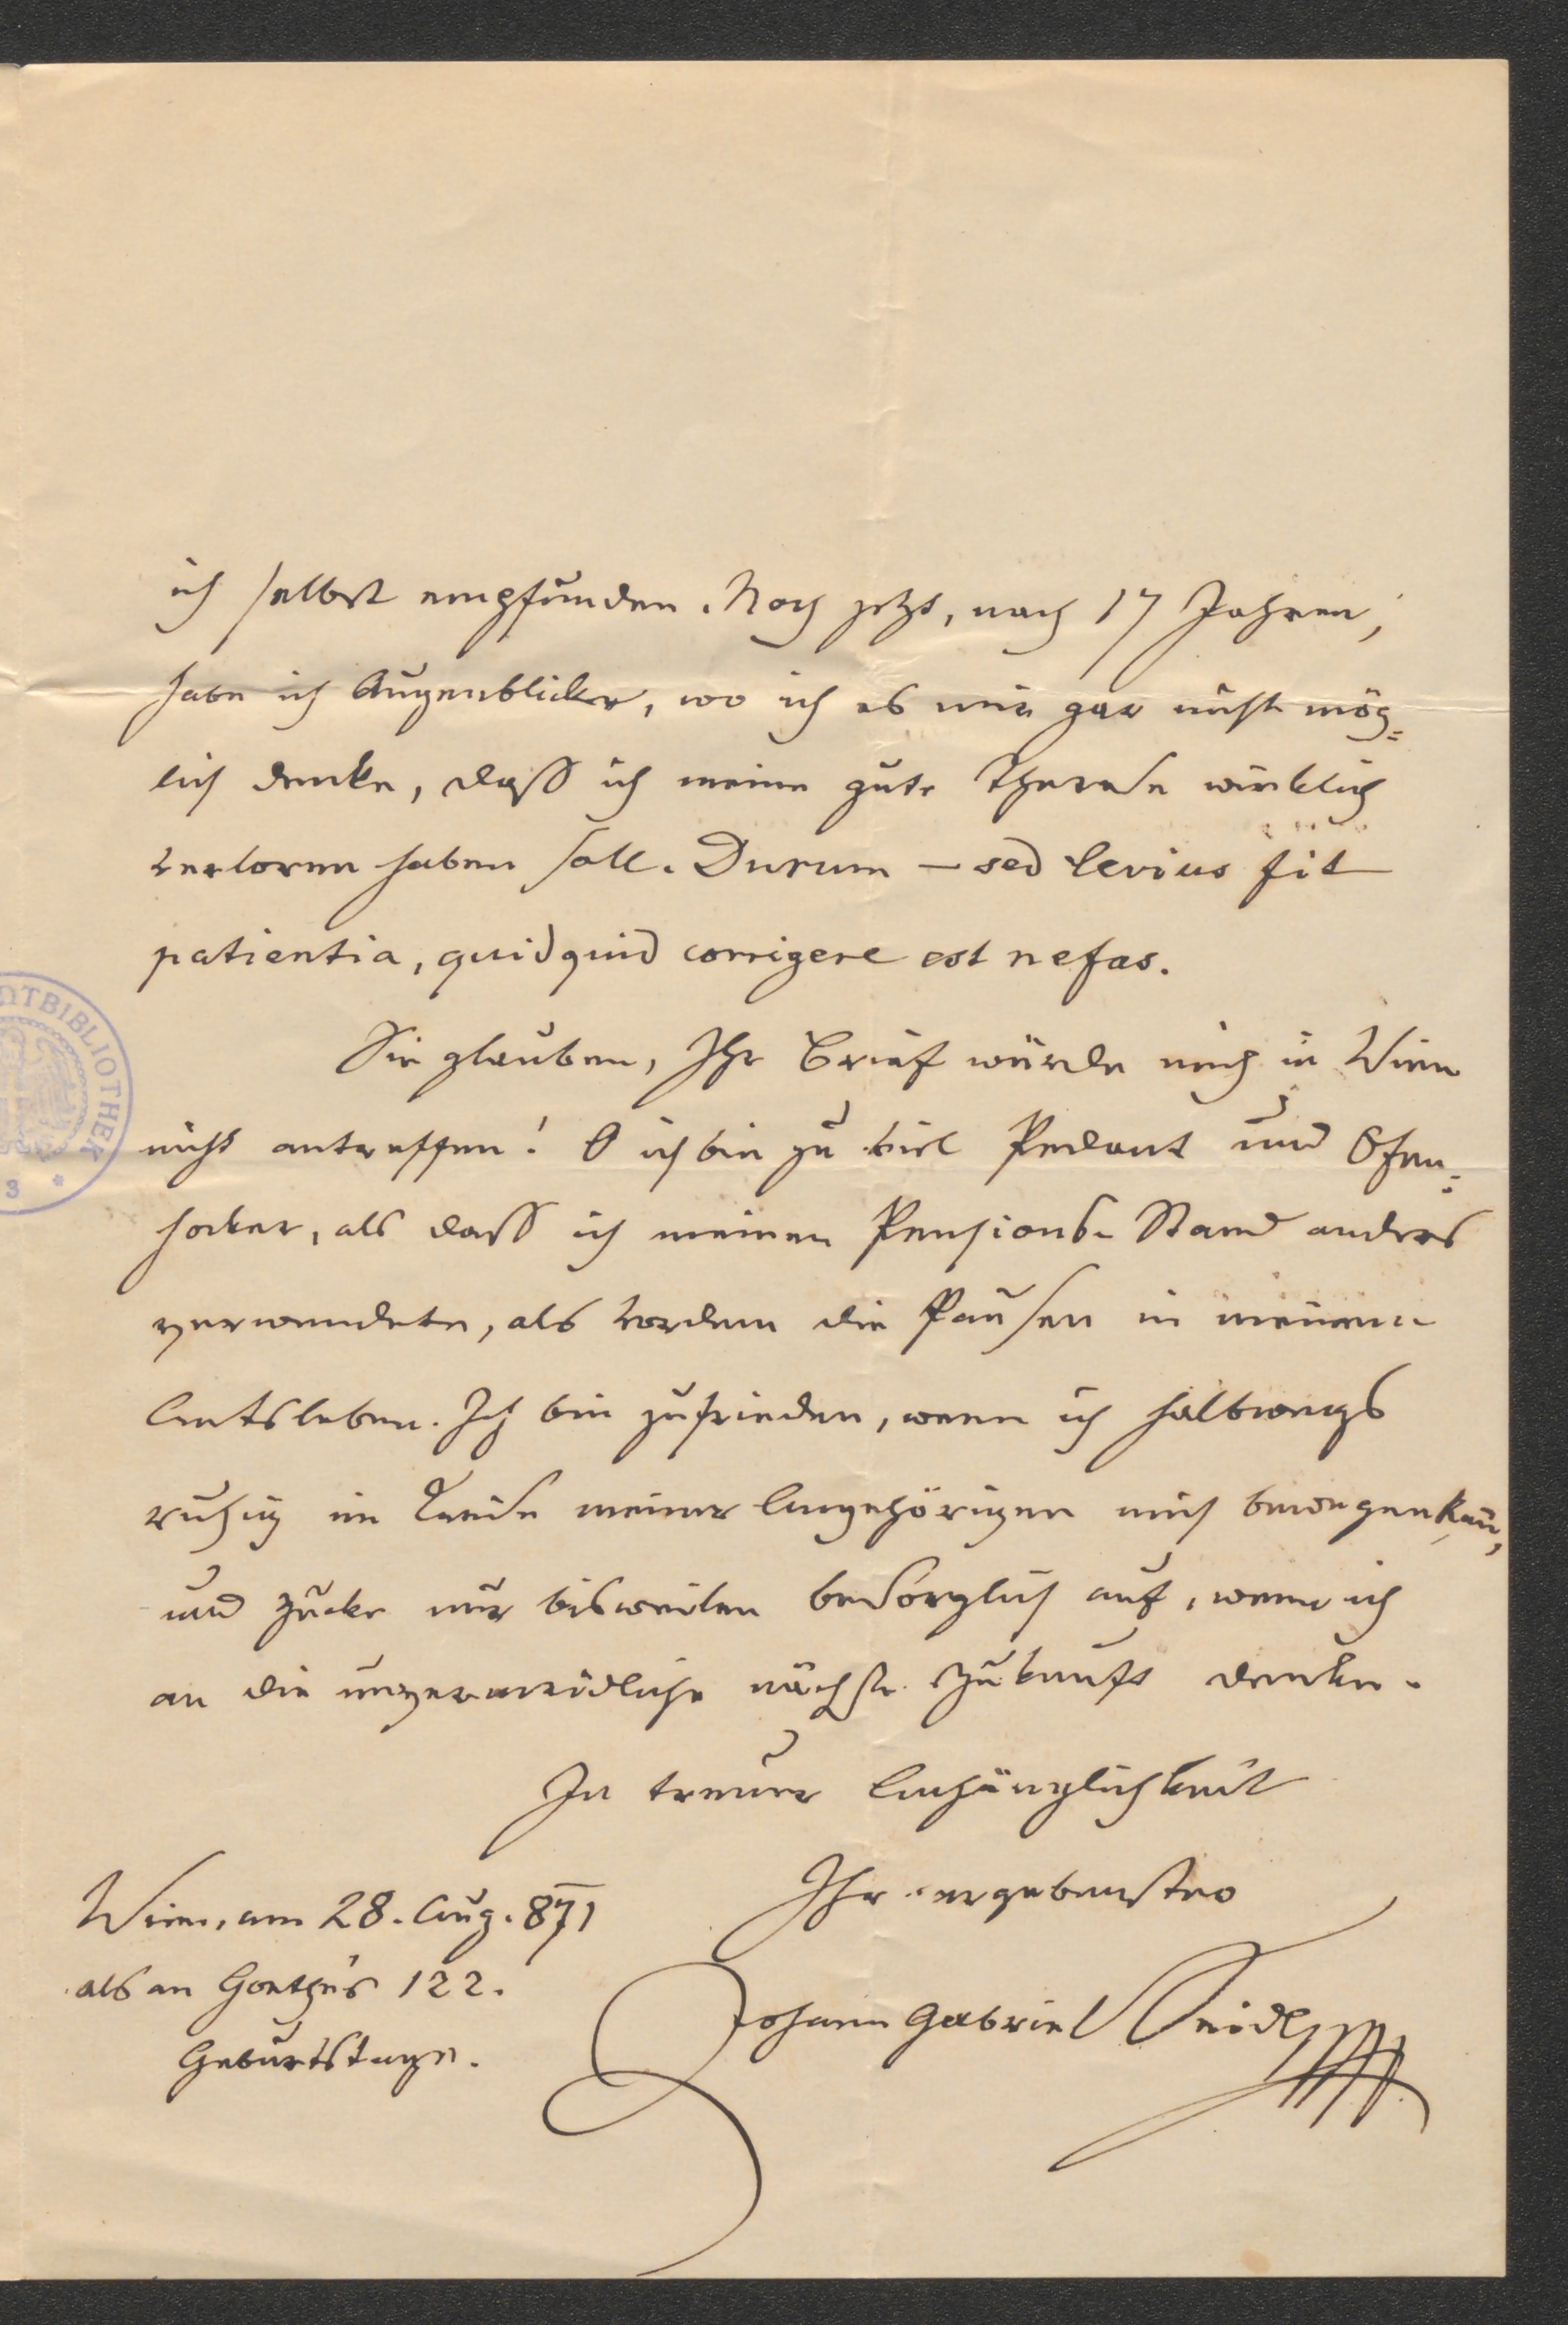 ich selbst empfunden. Noch jetzt, nach 17 Jahren,
habe ich Augenblicke, wo ich es mir gar nicht mög=
lich denke, daß ich meine gute Therese wirklich
verloren haben soll. Durum – sed levius fit
patientia, quidquid corrigere est nefas.
Sie glauben, Ihr Brief würde mich in Wien
nicht antreffen! O ich bin zu viel Pedant und Ofen=
hocker, als daß ich meinen Pensions-Stand anders
verwendete, als vordem die Pausen in meinem
Amtsleben. Ich bin zufrieden, wenn ich halbwegs
ruhig im Kreise meiner Angehörigen mich bewegen kan̄,
und zucke nur bisweilen besorglich auf, wenn ich
an die unvermeidliche nächste Zukunft denke.
In treuer Anhänglichkeit
Ihr ergebenster
Wien, am 28. Aug. 871
als an Goethe's 122.
Geburtstage.
Johann Gabriel Seidl
DTBIBLIOTHEK
3 *